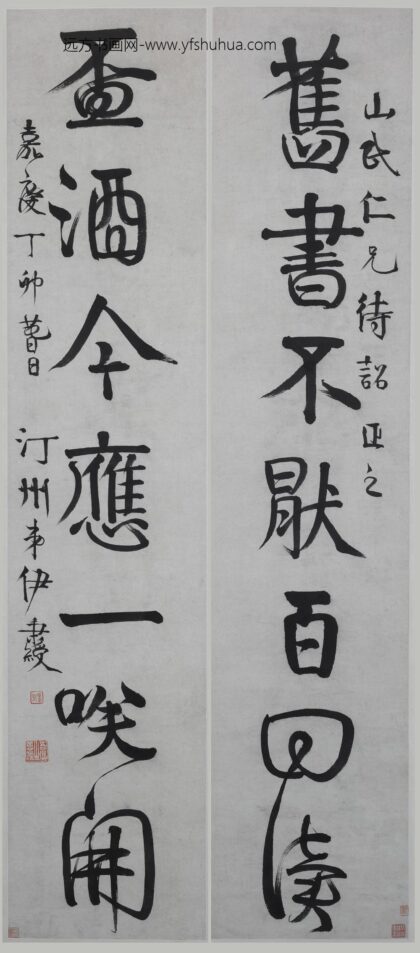 远方书画网-www.yfshuhua.com
山民仁兄待詔正之
舊書不猒百回讀
盃酒今應一咲開
嘉慶丁卯
汀州弟伊秉綬